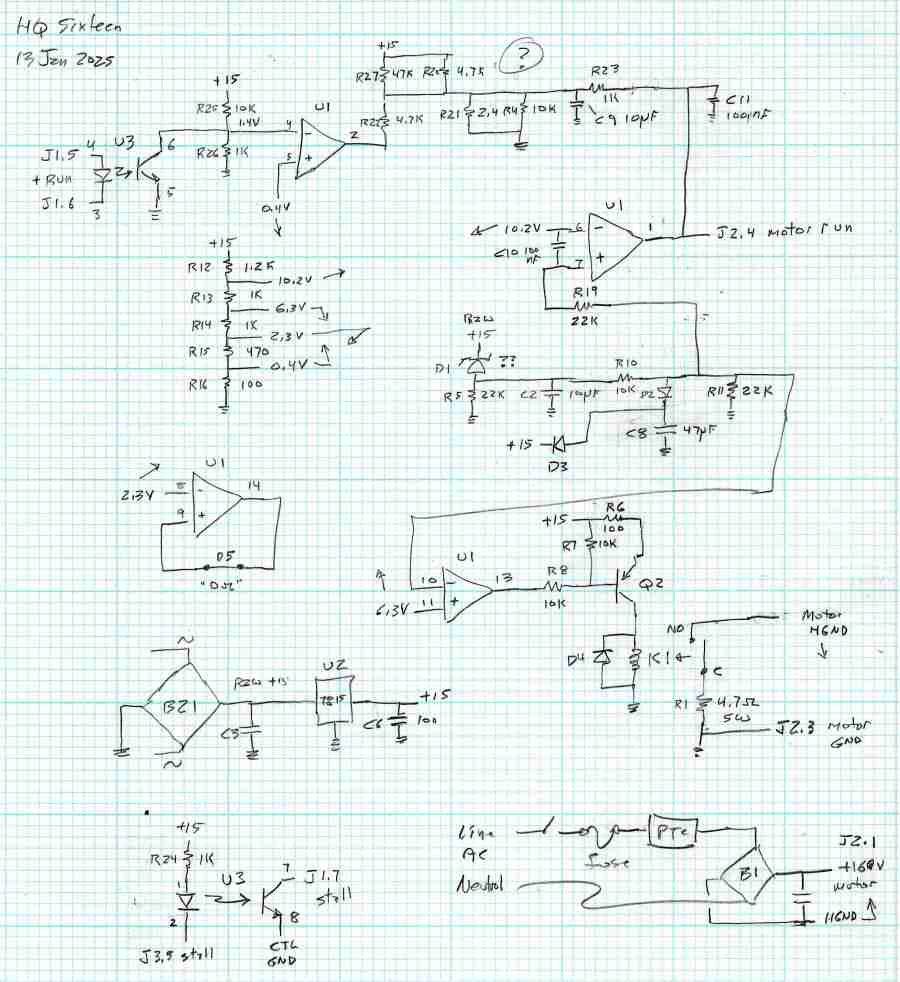 HQ Sixteen
13 Jan 2025
?
+15
R27 47K
4.7K
R23
1K
C9 10µF
C11
+15
R25 10K
1.4V
4
U1
2
4.7K
R21 2.4
R4 10K
J1.5 4 U3 6
+ RUN
J1.6
3
5
R26 1K
5
0.4V
+15
R12 1.2K
10.2V
R13 1K
6.3V
R14 1K
2.3V
R15 470
0.4V
R16 100
U1
10.2V 6
1
J2.4 motor run
C10 100 nF
7
R19
22K
Raw
+15
D1 ??
R5 22K
C2 10µF
R10
10K
D2
R11 22K
C8 47µF
+15
D3
U1
2.3V 8
14
9
D5
"0Ω"
+15
R6
100
R7 10K
U1
10
13
R8
10K
Q2
6.3V 11
D4
K1
NO
C
Motor
HGND
R1 4.7Ω
5W
J2.3 Motor
GND
~
BZ1
~
Raw +15
C3
U2
7815
+15
C6 100
+15
R24 1K
1
U3
2
J3.5 stall
7
J1.7
stall
8
CTL
GND
Line
AC
fuse
PTC
Neutral
B1
J2.1
+160V
motor
HGND